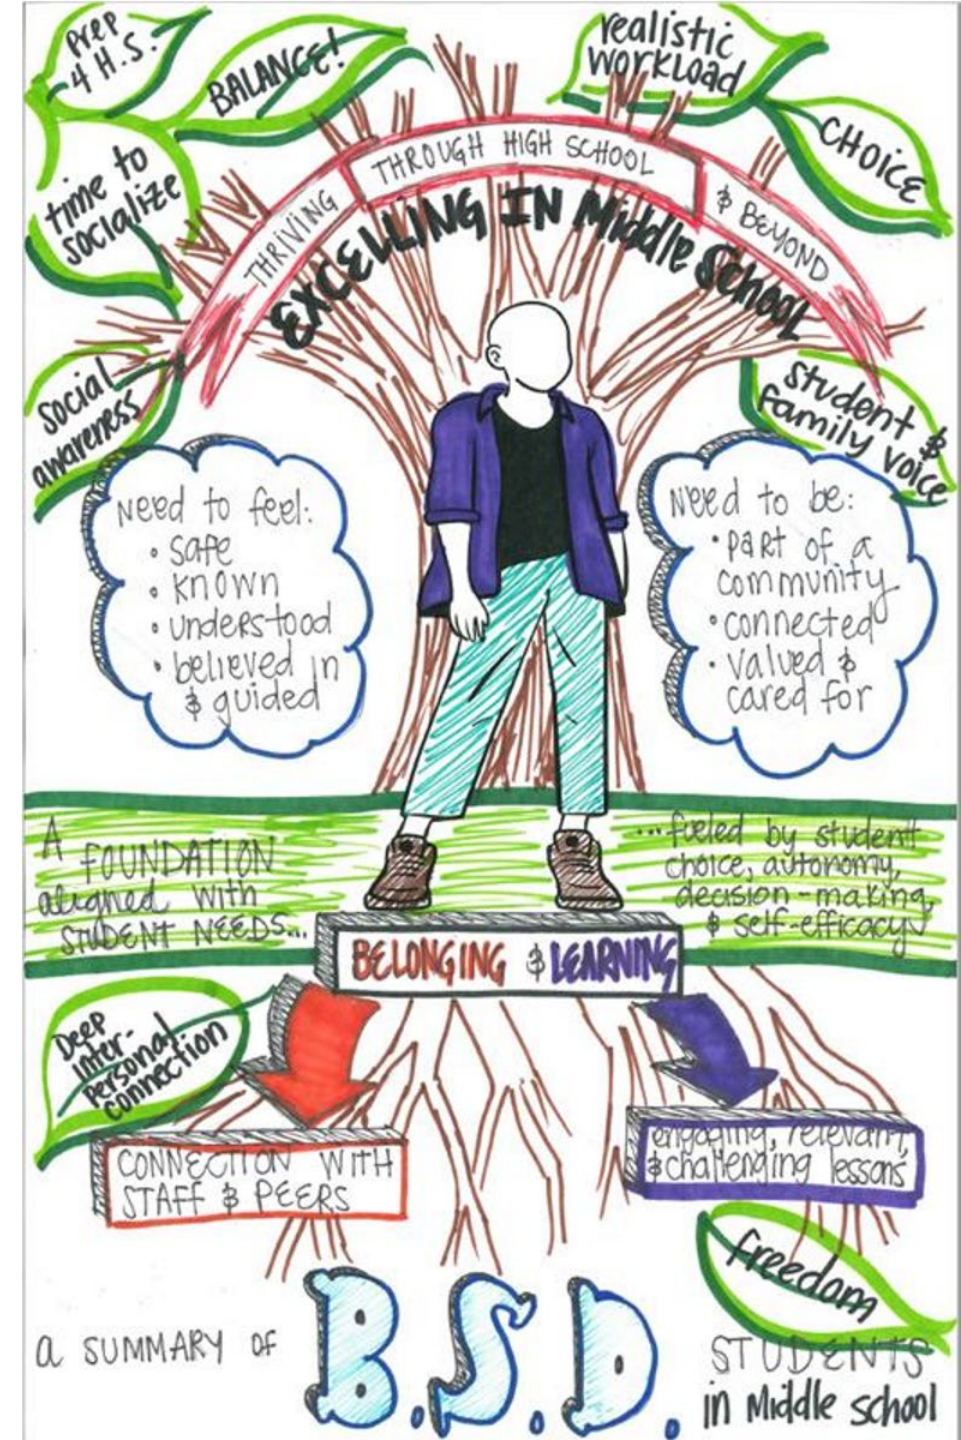 Prep
4 H.S.
BALANCE!
realistic
WORKLOAD
CHOICE
time to
socialize
THRIVING THROUGH HIGH SCHOOL & BEYOND
EXCELLING IN Middle School
Social
awareness
student &
family voice
Need to feel:
• safe
• known
• understood
• believed in
& guided
Need to be:
• part of a
community
• connected
• valued &
cared for
A FOUNDATION
aligned with
STUDENT NEEDS...
...fueled by student
choice, autonomy,
decision-making,
& self-efficacy
BELONGING & LEARNING
Deep
inter-
personal
connection
CONNECTION WITH
STAFF & PEERS
engaging, relevant,
& challenging lessons
freedom
a SUMMARY OF
B.S.D.
STUDENTS
in Middle school